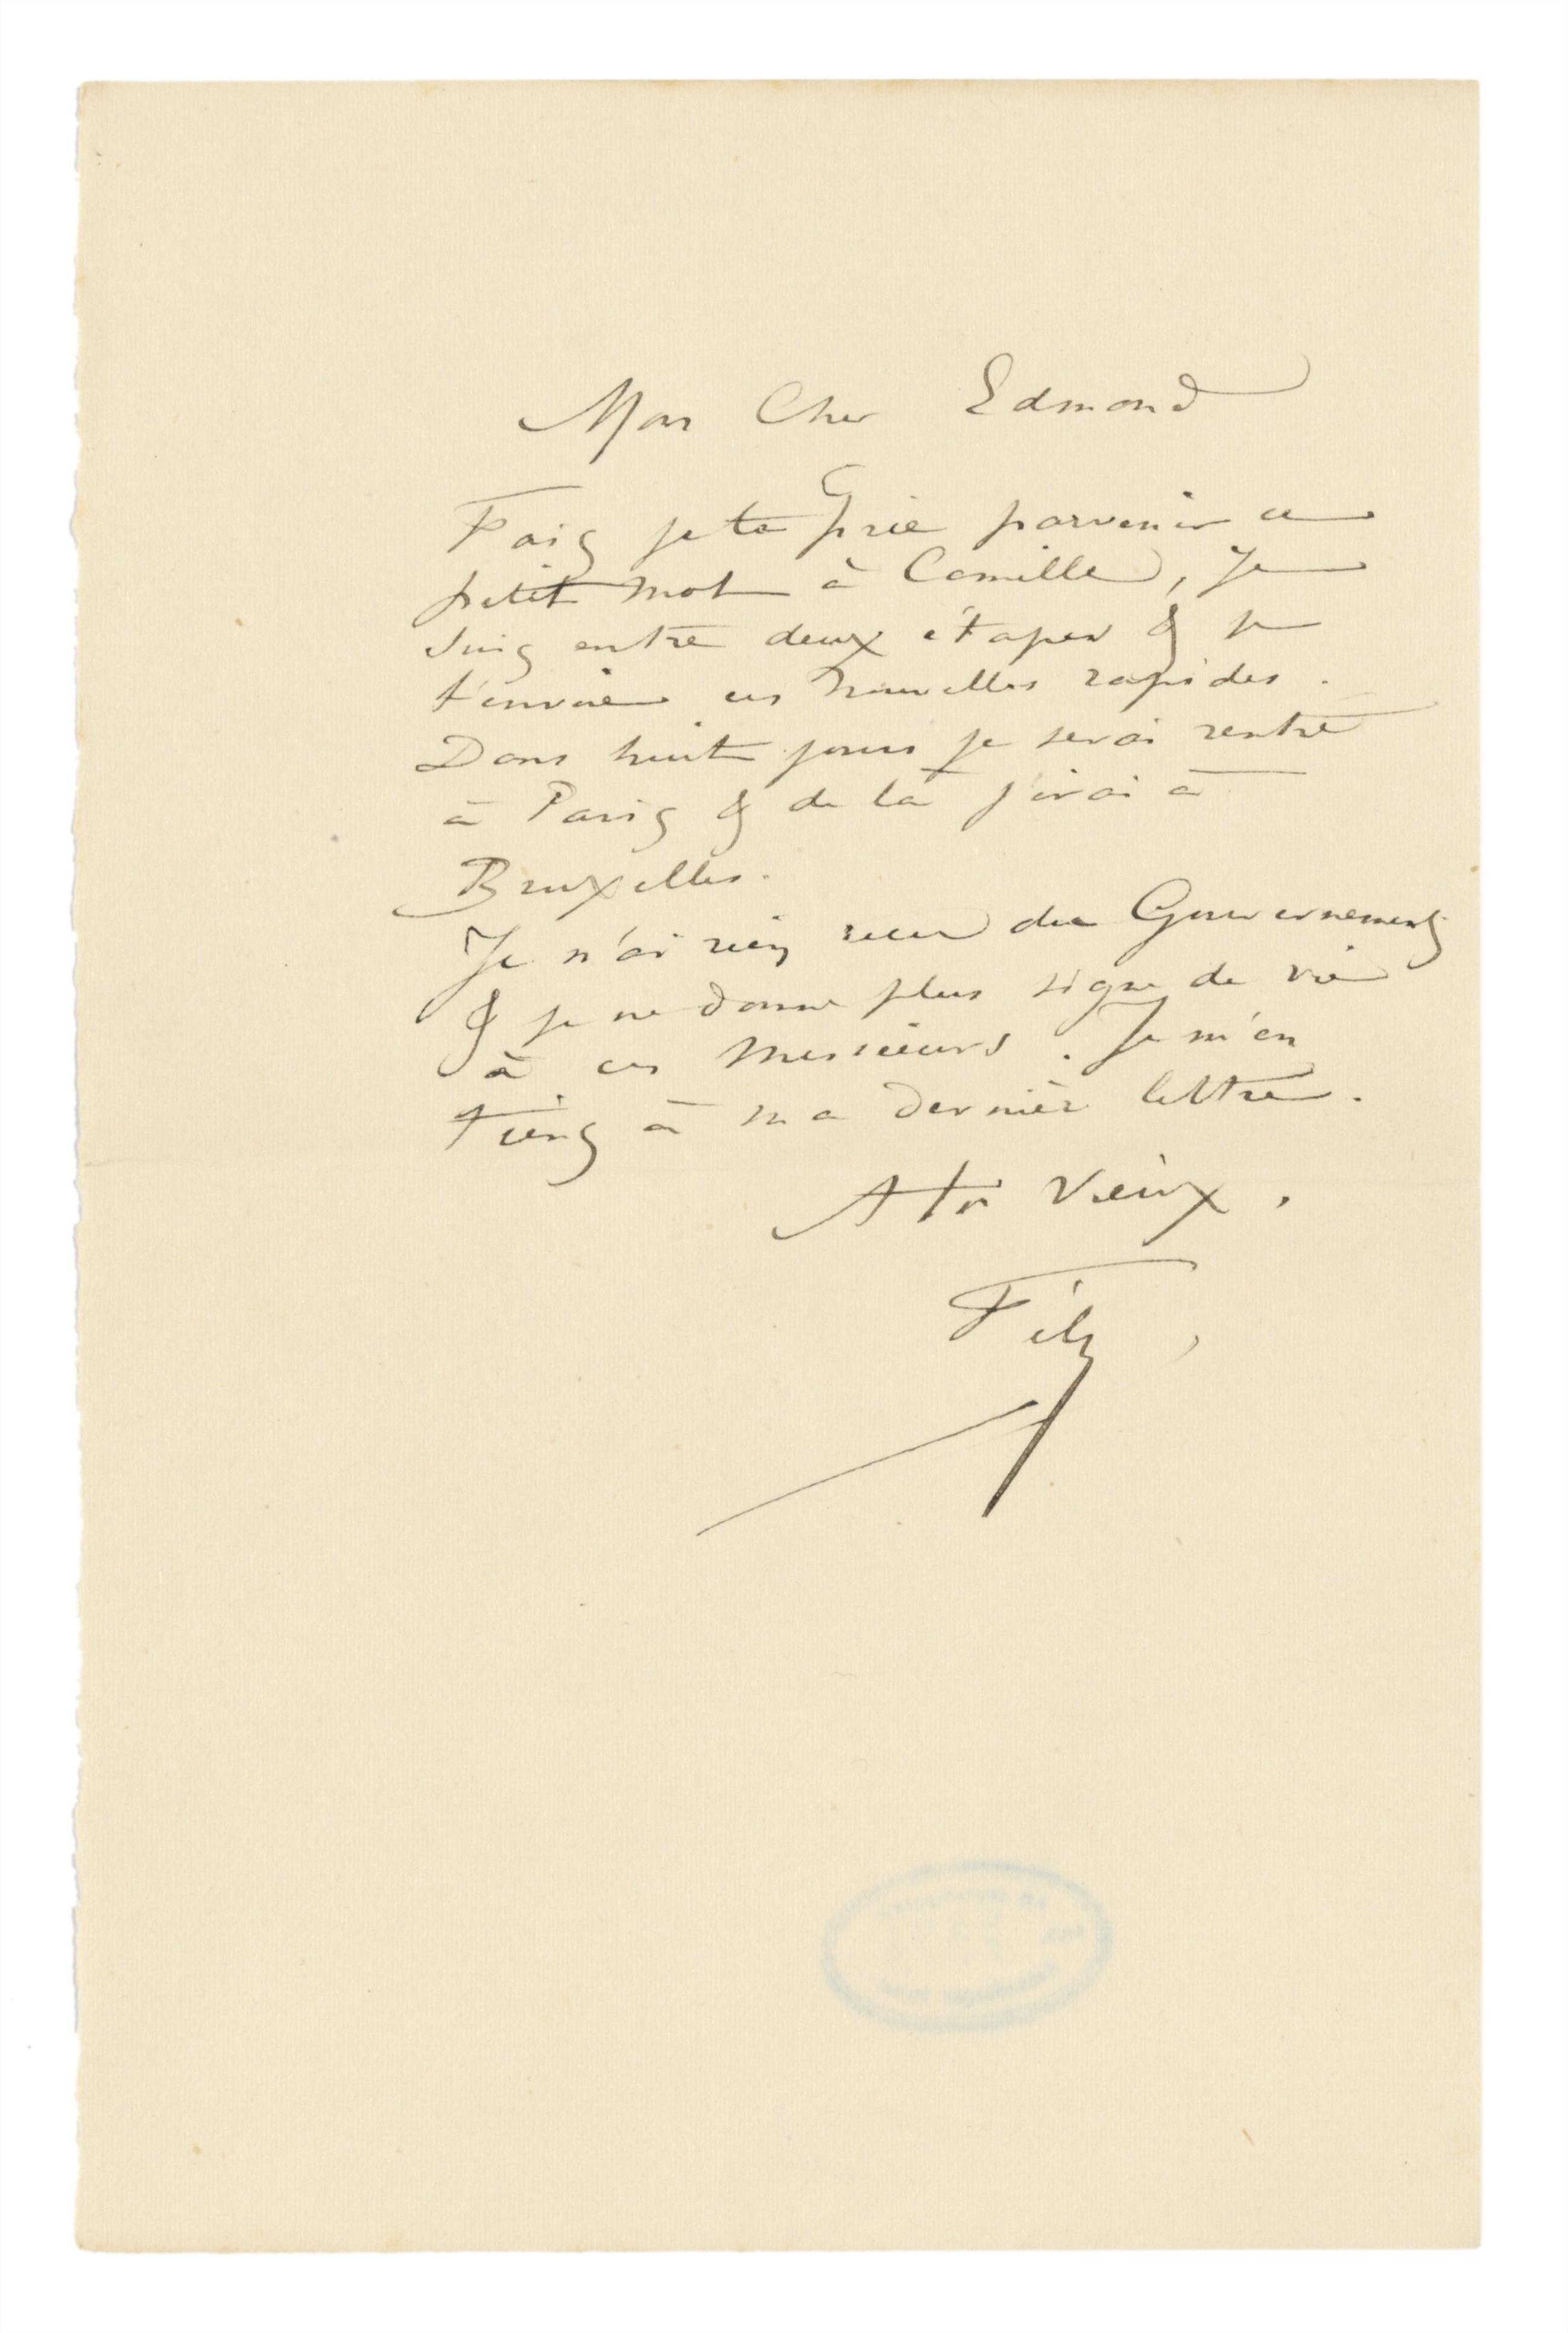 Mon Cher Edmond
Fais je te prie parvenir ce
petit mot à Camille, Je
suis entre deux étapes & je
t'envoie ces nouvelles rapides.
Dans huit jours je serai rentré
à Paris & de là j'irai à
Bruxelles.
Je n'ai rien recu du Gouvernement
& je ne donne plus signe de vie
à ces Messieurs. Je m'en
tiens à ma dernière lettre.
A toi Vieux,
Fély